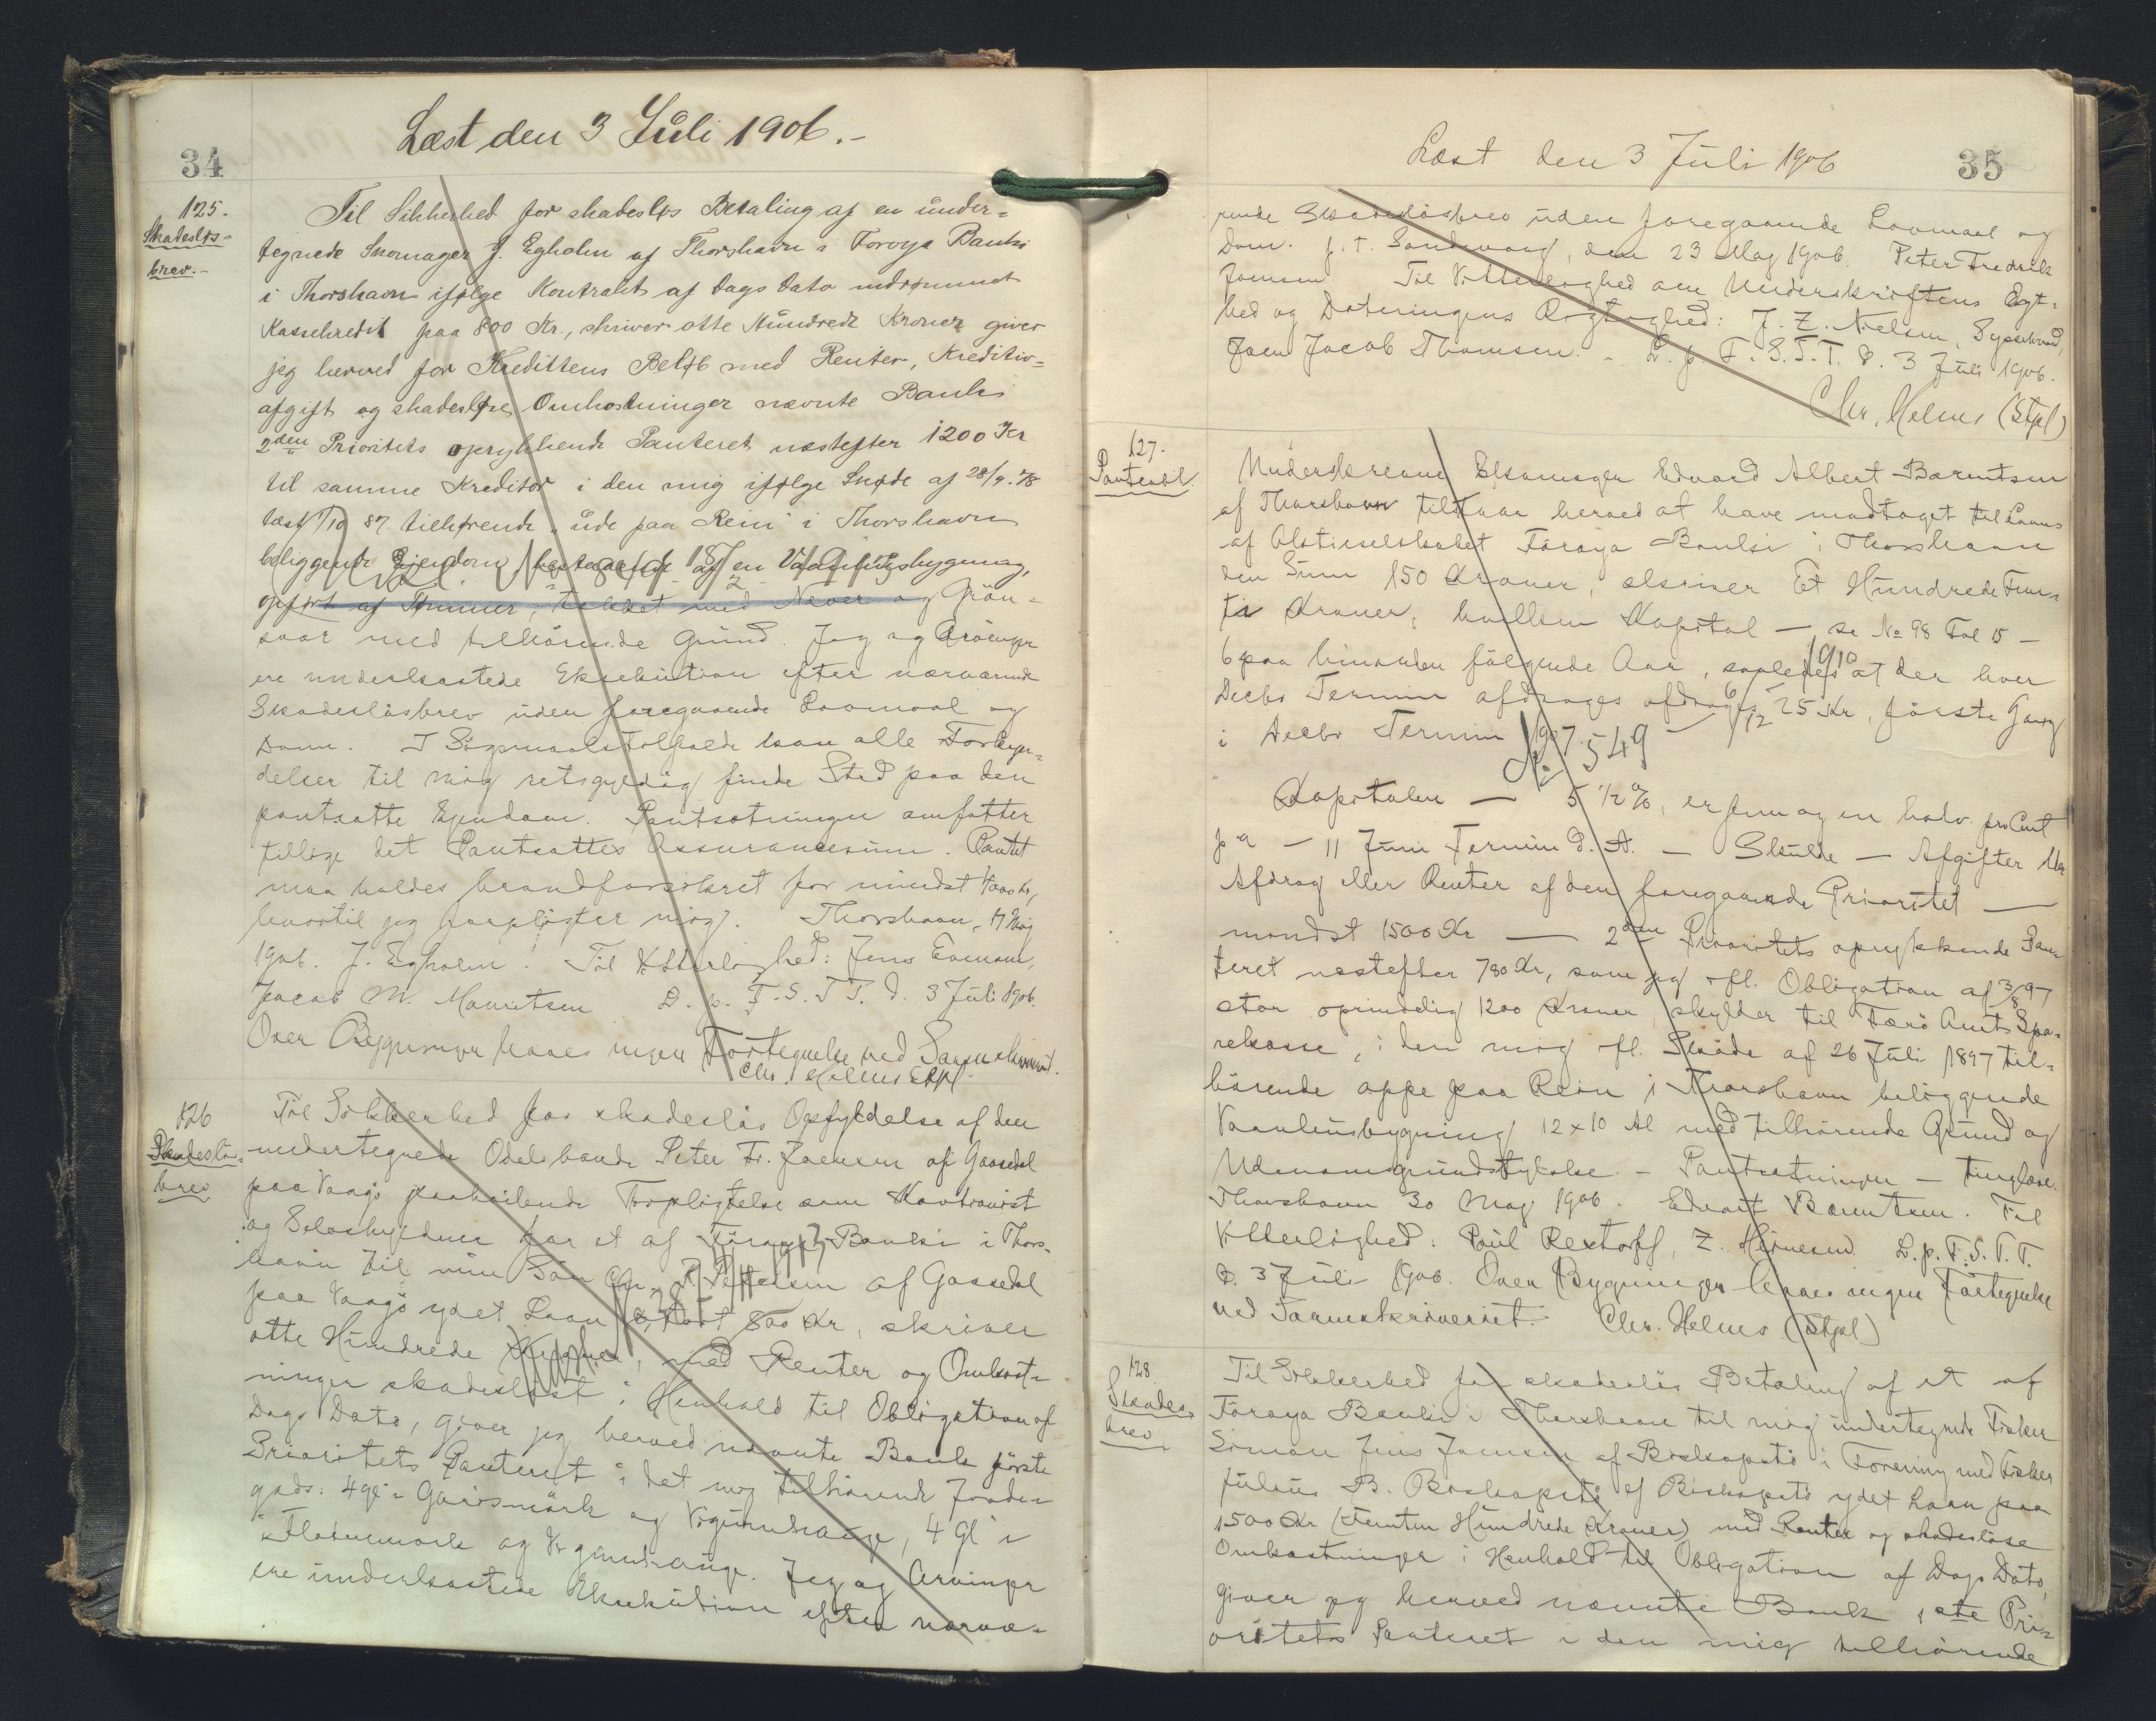 Læst den 3 Juli 1906.-
34
125.
Skadesløs-
brev.-
Til Sikkerhed for skadesløs Betaling af en under-
tegnede Skomager J. Egholm af Thorshavn i Føroya Banki
i Thorshavn ifølge Kontrakt af Dags Dato indrømmet
Kassekredit paa 800 Kr., skriver otte Hundrede Kroner giver
jeg herved for Kredittens Beløb med Renter, Kreditiv-
afgift og skadesløse Omkostninger nævnte Banki
2den Prioritets oprykkende Panteret næstefter 1200 Kr
til samme Kreditor i den mig ifølge Skøde af 28/9. 78
læst 1/10 87. tilhørende "úde paa Rein" i Thorshavn
beliggende Ejendom bestaaende af en Vaaningsbygning,
opført af Tømmer, tækket med Næver og Grön-
svær med tilhörende Grund. Jeg og Arvinger
ere underkastede Eksekution efter nærværende
Skadeslösbrev uden foregaaende Lovmaal og
Dom. I Sögsmaalstilfælde kan alle Forkyn-
delser til mig retsgyldig finde Sted paa den
pantsatte Ejendom. Pantsætningen omfatter
tillige det Pantsattes Assurancesum. Pantet
maa holdes brandforsikret for mindst 4000 Kr,
hvortil jeg forpligter mig. Thorshavn, 17 Maj
1906. J. Egholm. Til Vitterlighed: Jens
Jacob M. Mouritsen D. p. F. S. T T. d. 3 Juli 1906.
Over Bygninger haves ingen Fortegnelse ved Sorenskriveriet.
Chr. Helmes Stpl.
126
Skadeslös-
brev
Til Sikkerhed for skadeslös Opfyldelse af den
undertegnede Odelsbonde Peter Fr. Joensen af Gaasedal
paa Vaagö paahvilende Forpligtelse som Kautionist
og Selvskyldner for et af Föroya Banki i Thors-
havn til min Sön Chr. P. Pettersen af Gaasedal
paa Vaagö ydet Laan stort 800 Kr, skriver
otte Hundrede Kroner, med Renter og Omkost-
ninger skadeslöst i Henhold til Obligation af
Dags Dato, giver jeg herved nævnte Bank förste
Prioritets Panteret i det mig tilhörende Jorde-
gods: 4 gl i og 4 gl i
og Jeg og Arvinger
ere underkastede Eksekution efter nærvæ-
Læst den 3 Juli 1906
35
rende Skadeslösbrev uden foregaaende Lovmaal og
Dom. p. t. Sandevaag, den 23 Maj 1906. Peter Fredrik
Joensen. Til Vitterlighed om Underskriftens Ægt-
hed og Dateringens Rigtighed: J. Z. Nielsen, Sysselmand,
Joen Jacob Thomsen. - D. p. F. S. T. T. d. 3 Juli 1906.
Chr. Helmes (Stpl)
127.
Panteobl.
Underskrevne Edvard Albert Barentsen
af Thorshavn tilstaar herved at have modtaget til Laans
af Aktieselskabet Föroya Banki i Thorshavn
den Sum 150 Kroner, skriver Et Hundrede Femti-
ti Kroner, hvilken Kapital — se No 98 Fol 15 —
6 paa hinanden fölgende Aar, saaledes at der hver
Decbr Termin afdrages afdrages 25 Kr, förste Gang
i Decbr Termin 1907.
1910
6/12
No 549
Kapitalen — 5 1/2 %, er fem og en halv pro Cent
p a — 11 Juni Termin d. A. — Skulde — Afgifter
Afdrag eller Renter af den foregaaende Prioritet —
mindst 1500 Kr — 2den Prioritets oprykkende Pan-
teret næstefter 780 Kr, som jeg ifl. Obligation af 3/8 97
stor oprindelig 1200 Kroner skylder til Færö Amts Spa-
rekasse, i den mig ifl. Sköde af 26 Juli 1897 til-
hörende oppe paa Rein i Thorshavn beliggende
Vaaningsbygning 12 x 10 Al med tilhörende Grund og
Udenomsgrundstykke. — Pantsætningen — tinglæses.
Thorshavn 30 Maj 1906. Edvart Barentsen. Til
Vitterlighed: Paul Rextorff, Z. Heinesen D. p. F. S. T. T.
d. 3 Juli 1906. Over Bygninger haves ingen Fortegnelse
ved Sorenskriveriet. Chr. Helmes (Stpl)
128
Skadeslös
brev
Til Sikkerhed for skadeslös Betaling af et af
Föroya Banki i Thorshavn til mig undertegnede Fisker
Simon Jens Joensen af Biskopstö i Forening med Fisker
Julius B. Biskopstö af Biskopstö ydet Laan paa
1500 Kr (Femten Hundrede Kroner) med Renter og skadeslöse
Omkostninger i Henhold til Obligation af Dags Dato,
giver jeg herved nævnte Bank 1ste Pri-
oritets Panteret i den mig tilhörende